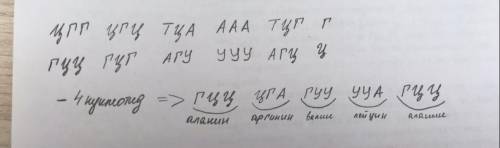 ЦГГ ЦГЦ ТЦА ААА ТЦГ Г
ГЦЦ ГЦГ АГУ УУУ АГЦ Ц
- 4 нуклеотид => ГЦЦ ЦГА ГУУ УУА ГЦЦ
аланин аргинин валин лейцин аланин